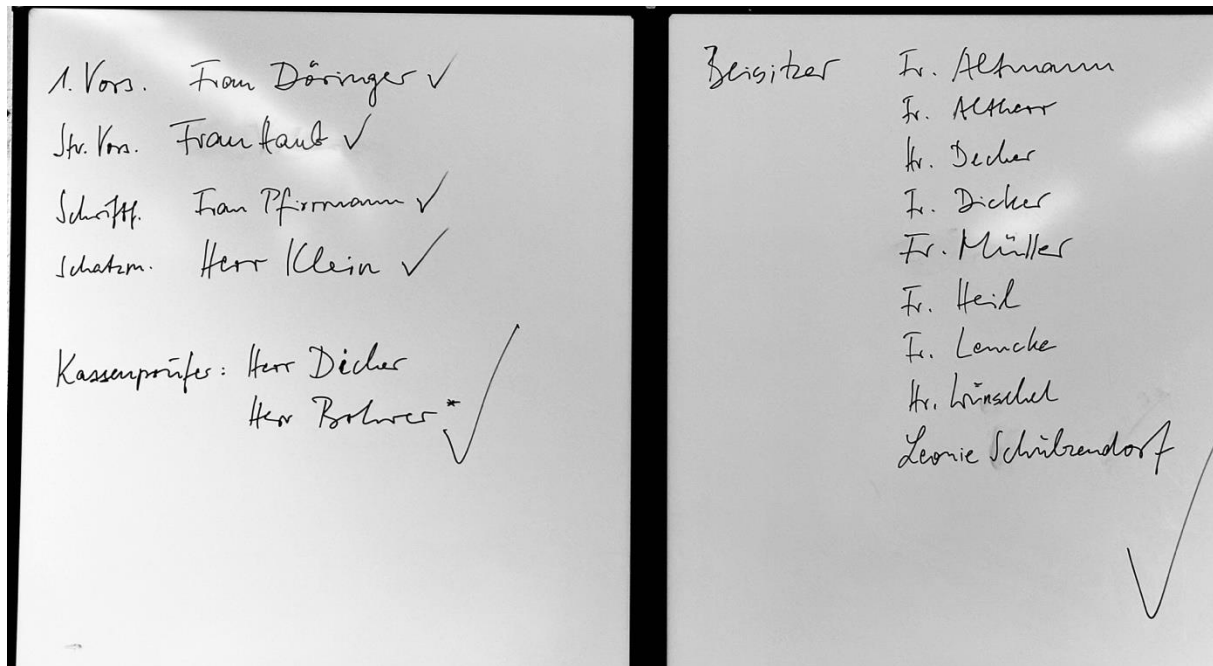 1. Vors. Frau Döringer ✓
Stv. Vors. Frau Haub ✓
Schriftf. Frau Pfirrmann ✓
Schatzm. Herr Klein ✓
Kassenprüfer: Herr Dicker
Herr Bohrer * ✓
Beisitzer Fr. Altmann
Fr. Altherr
Hr. Decker
Fr. Dicker
Fr. Müller
Fr. Heil
Fr. Lemcke
Hr. Wünschel
Leonie ✓